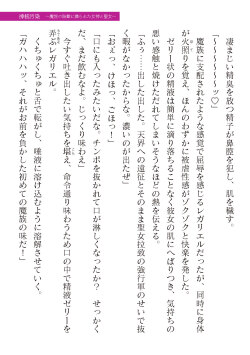 凄まじい精臭を放つ精子が鼻腔を犯し、肌を穢す。
「～～～～～～ッ♡」
魔族に支配されたような感覚で屈辱を感じるレガリエルだったが、同時に身体
が火照りを覚え、ほんのわずかに被虐性感がゾクゾクと快楽を発した。
ゼリー状の精液は簡単に滴り落ちることなく彼女の肌にへばりつき、気持ちの
悪い感触と焼けただれてしまいそうなほどの熱を伝える。
「ふぅ……出した出した。天界への遠征とそのまま聖女拉致の強行軍のせいで抜
く暇がなかったからな。濃いのが出たぜ」
「おぇっ、けほっ、こほっ……」
「口にも入ったみたいだな。チンポを抜かれて口が淋しくなったか？せっかく
だ、まだ飲むなよ。じっくり味わえ」
今すぐ吐き出したい気持ちを堪え、命令通り味わうため口の中で精液ゼリーを
弄ぶレガリエル。
くちゅくちゅと舌で転がし、唾液に溶け込むように溶解させていく。
「ガハハッ、それがお前を負かした初めての魔族の味だ！」